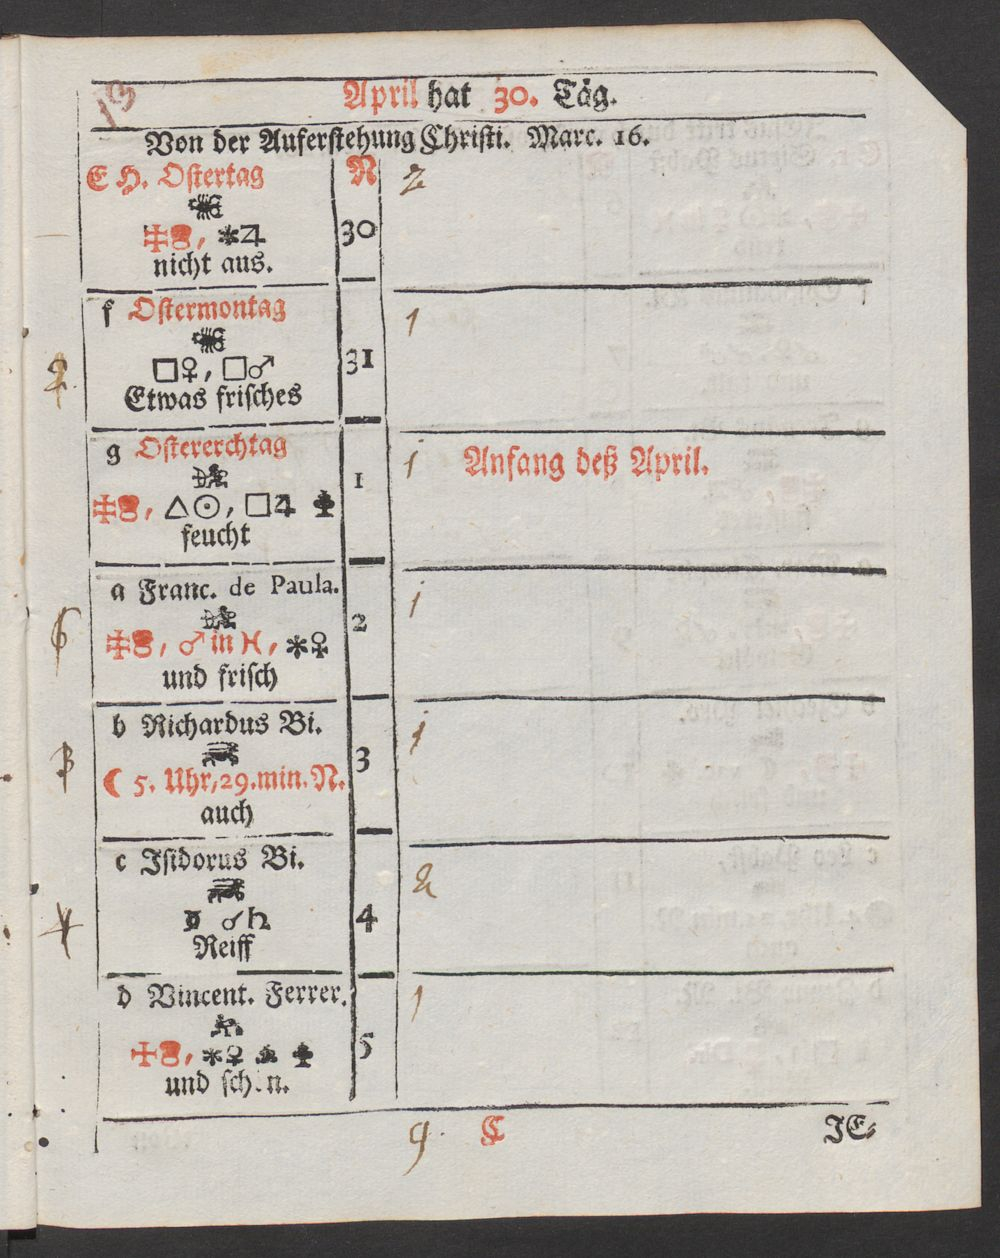 13
April hat 30. Täg.
Von der Auferstehung Christi. Marc. 16.
E H. Ostertag N 2
✠, ⚹♃ 30
nicht aus.
f Ostermontag 1
□♀, □♂ 31
Etwas frisches
g Ostererchtag 1 Anfang deß April.
✠, △☉, □♃ 1
feucht
a Franc. de Paula. 1
✠, ♂ in ♓, ⚹♀ 2
und frisch
b Richardus Bi. 1
☾ 5. Uhr, 29. min. N. 3
auch
c Isidorus Bi. 2
☌♄ 4
Reiff
d Vincent. Ferrer. 1
✠, ⚹♀ 5
und sch n.
9. C JE⸗